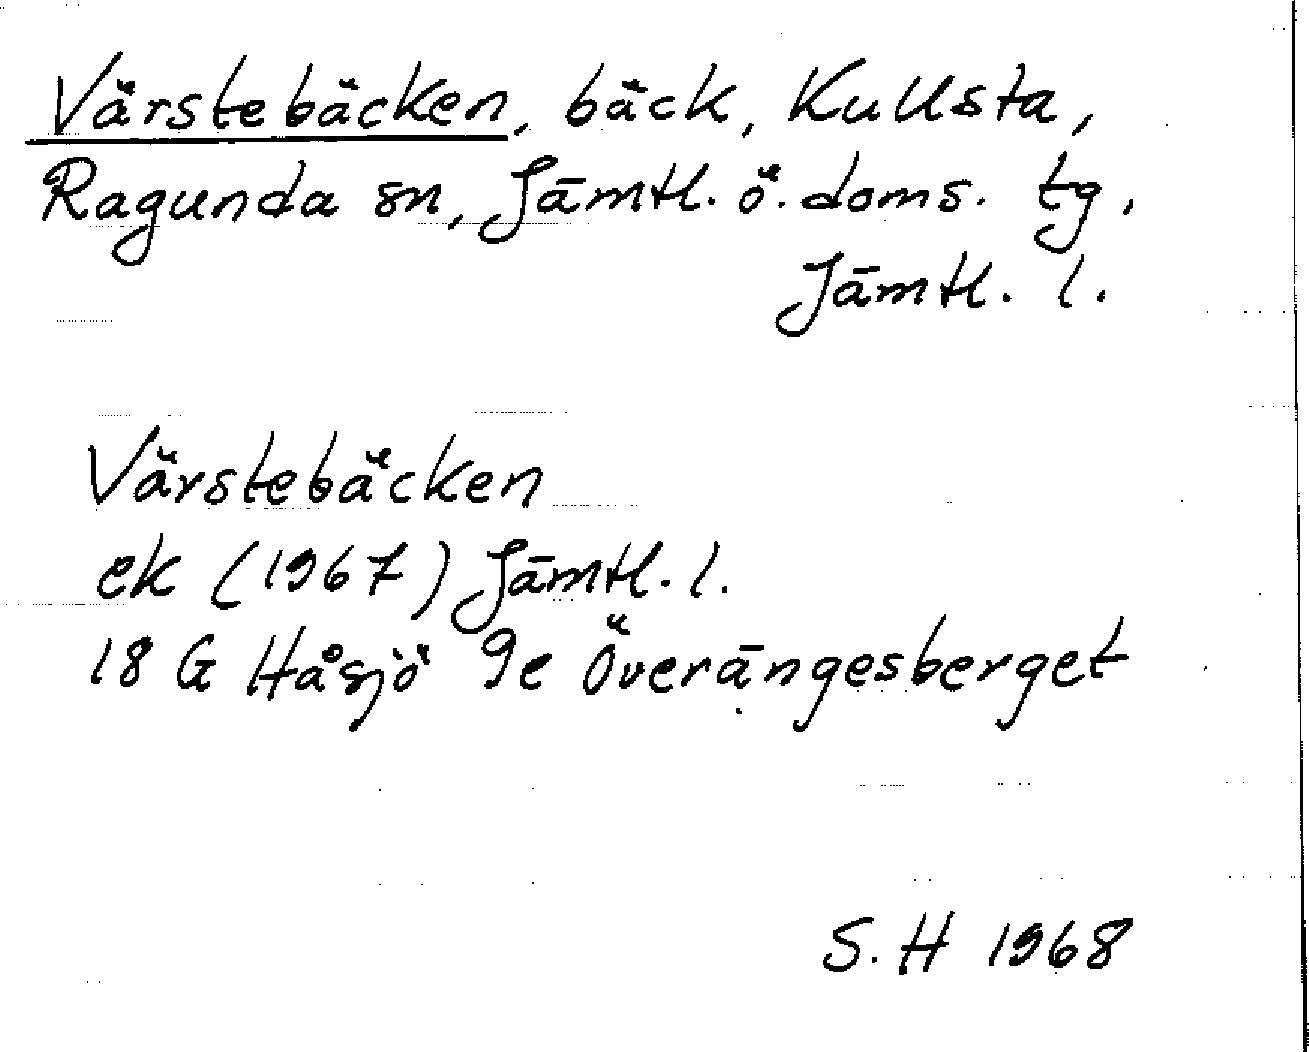 Värstebäcken, bäck, Kullsta,
Ragunda sn, Jämtl. ö. doms. tg,
Jämtl. l.
Värstebäcken
ek (1967) Jämtl. l.
18 G Håsjö 9e Överängesberget
S. H 1968